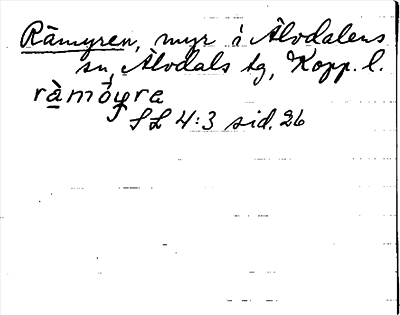 Råmyren, myr i Älvdalens
sn, Älvdals tg, Kopp. l.
ràmo̊yra
SL 4:3 sid. 26